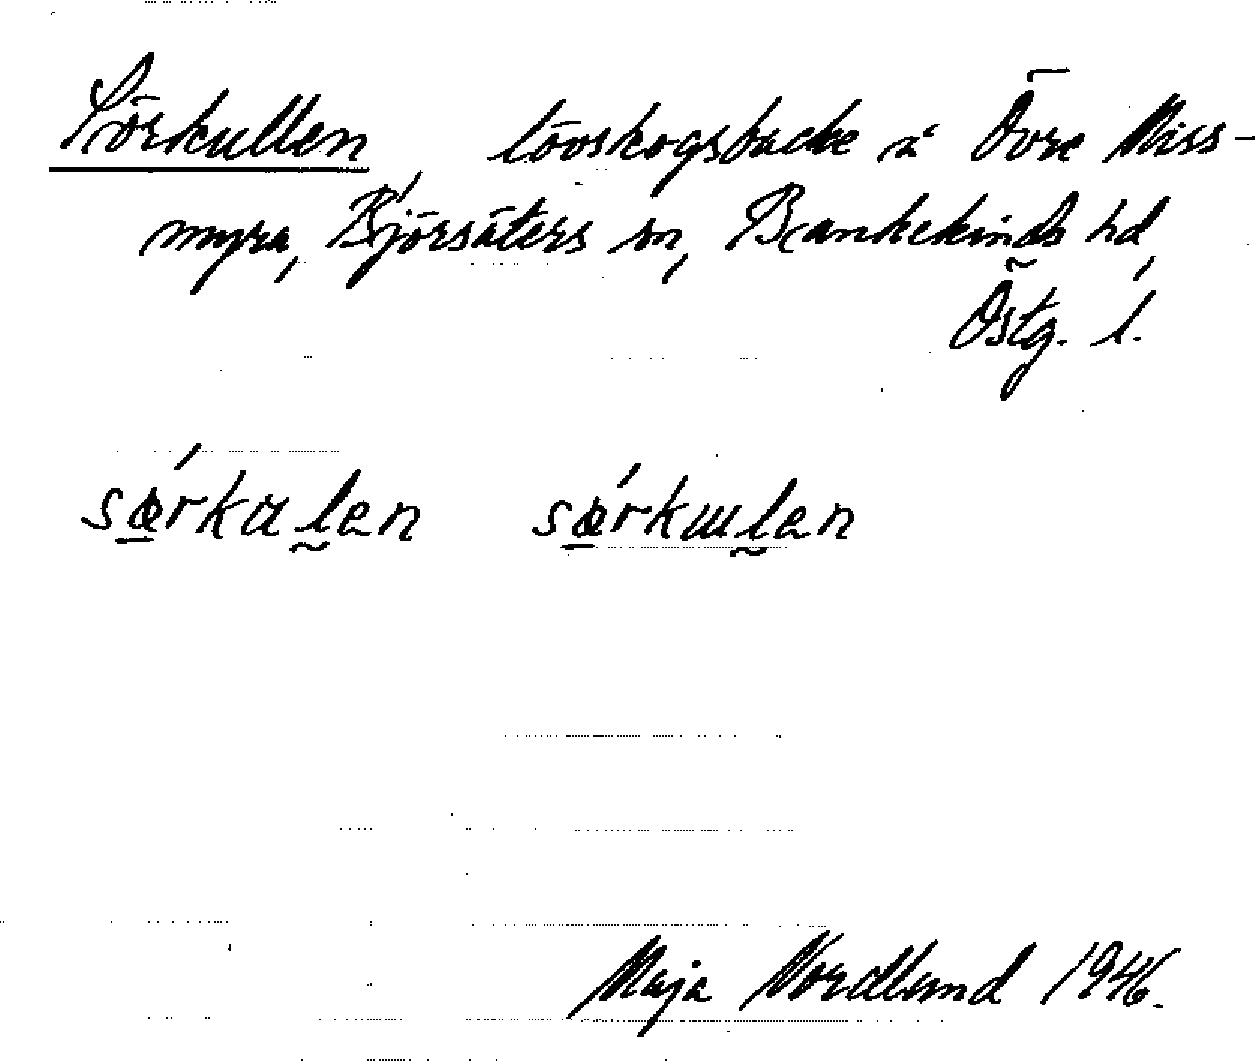 Sörkullen, lövskogsbacke å Övre Miss-
myra, Björsäters sn, Bankekinds hd,
Östg. l.
sœ́rkulen sœ́rkɯlen
Maja Nordlund 1946.